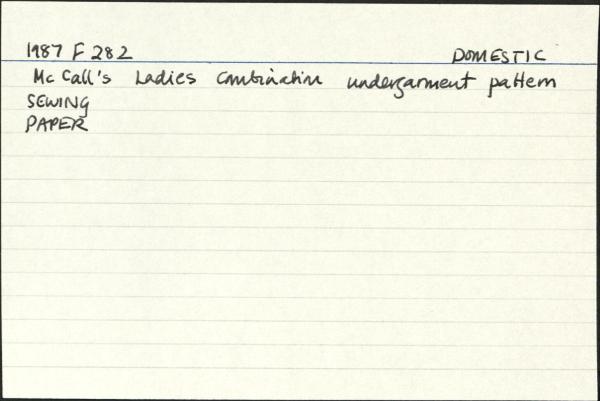 1987 F 282 DOMESTIC
Mc Call's Ladies Combination undergarment pattern
SEWING
PAPER